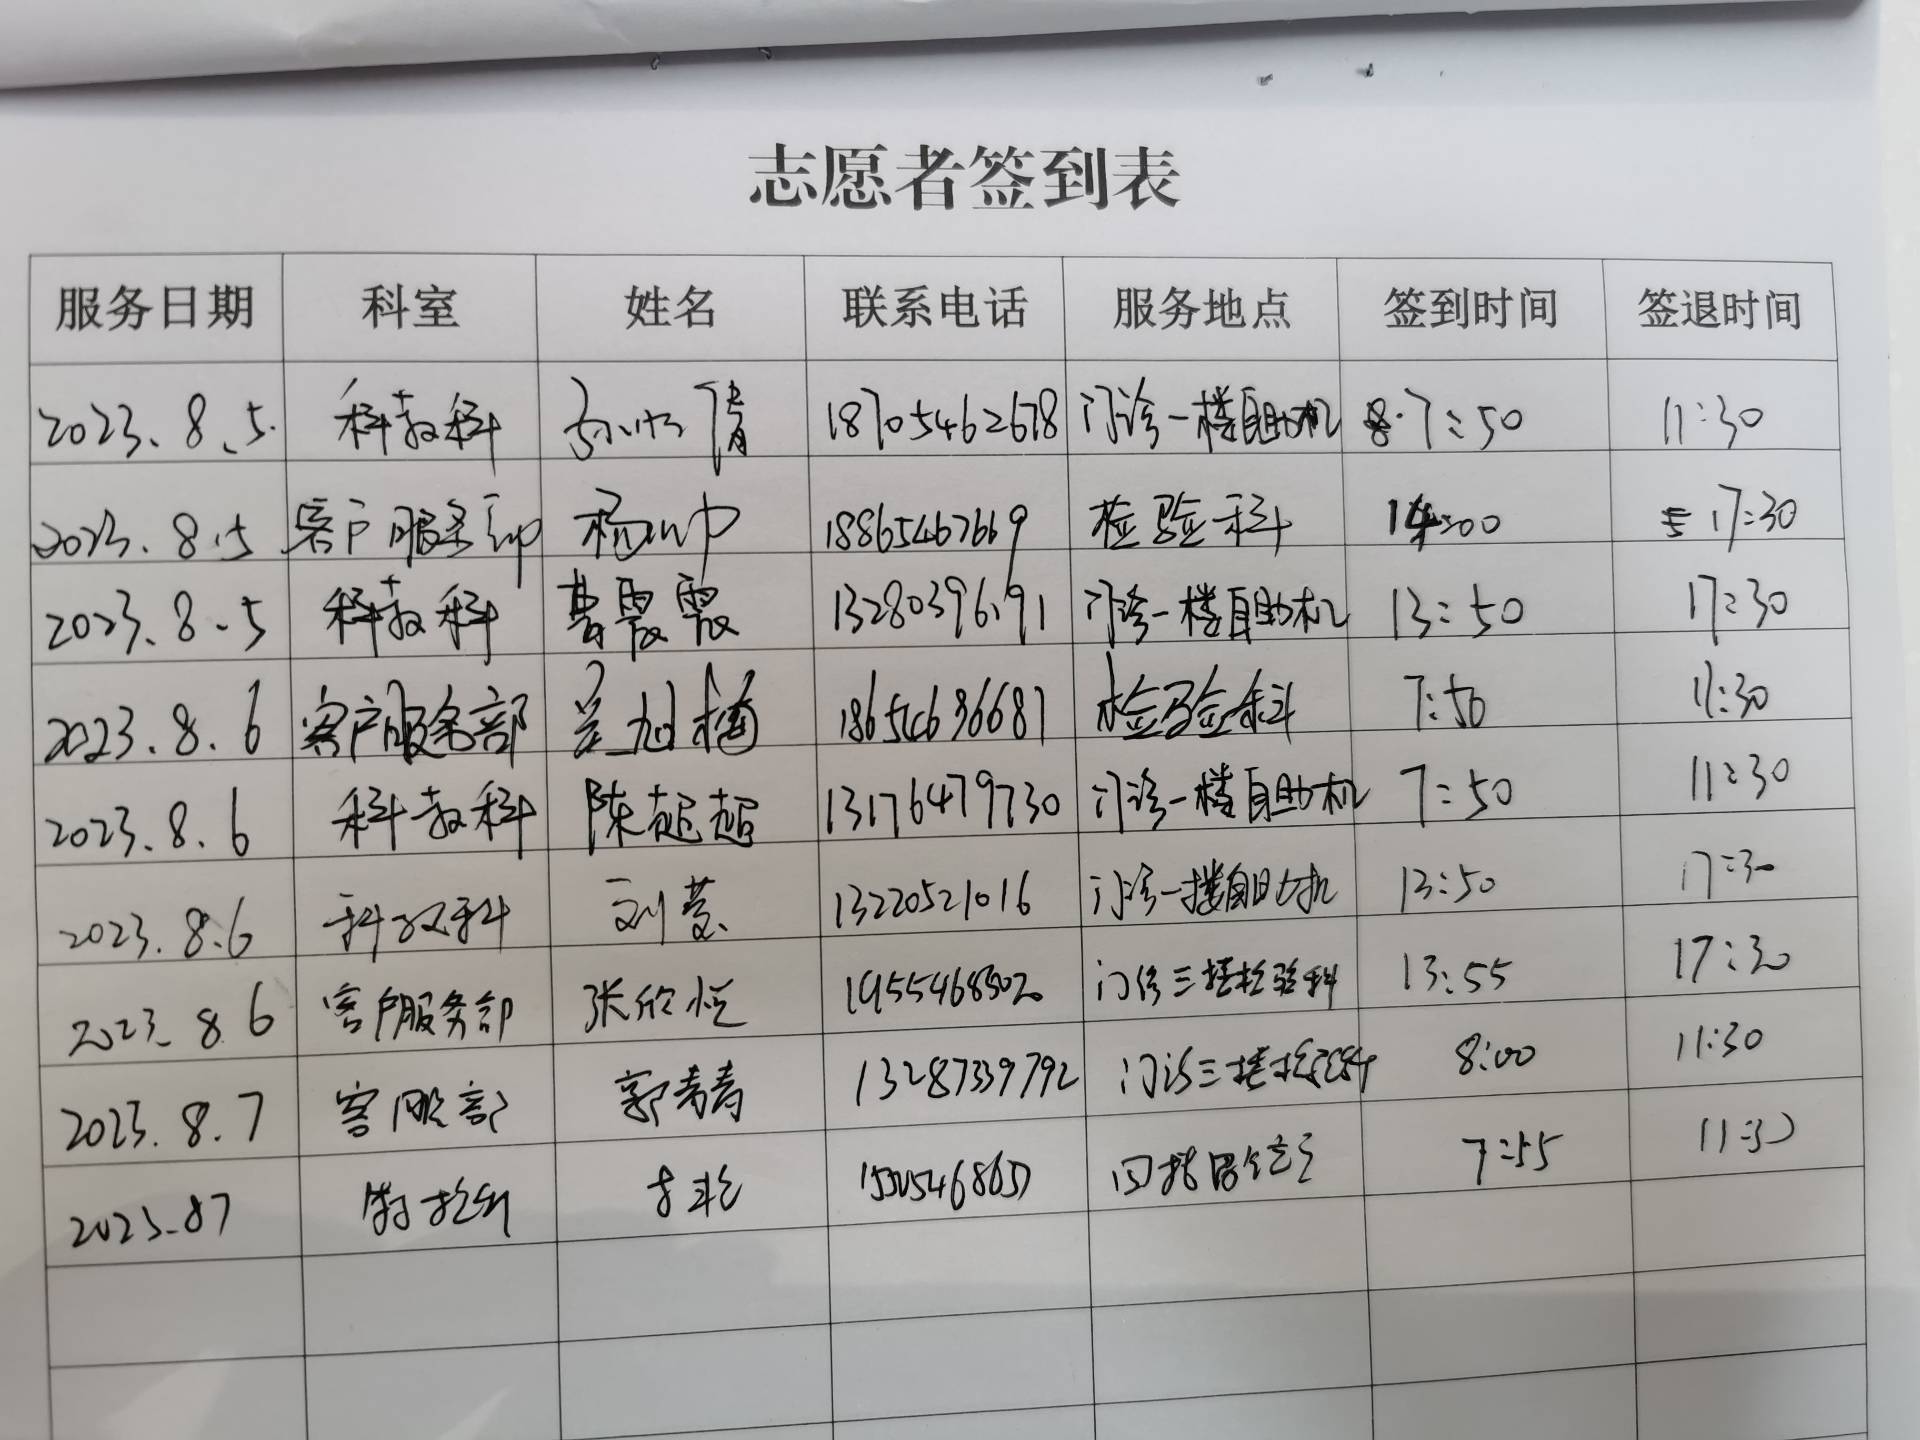 志愿者签到表
服务日期 科室 姓名 联系电话 服务地点 签到时间 签退时间
2023.8.5. 科教科 倩 18705462678 门诊一楼自助机 7:50 11:30
2023.8.5 客户服务部 杨帅 18865467669 检验科 14:00 17:30
2023.8.5 科教科 曹霞霞 13280396191 门诊一楼自助机 13:50 17:30
2023.8.6 客户服务部 吴旭楠 18654686681 检验科 7:50 11:30
2023.8.6 科教科 陈超超 13176479730 门诊一楼自助机 7:50 11:30
2023.8.6 科教科 刘蔓 13220521016 门诊一楼自助机 13:50 17:30
2023.8.6 客户服务部 张欣悦 19554683020 门诊三楼检验科 13:55 17:30
2023.8.7 客服部 郭青青 13287339792 门诊三楼检验科 8:00 11:30
2023.87 7:55 11:30